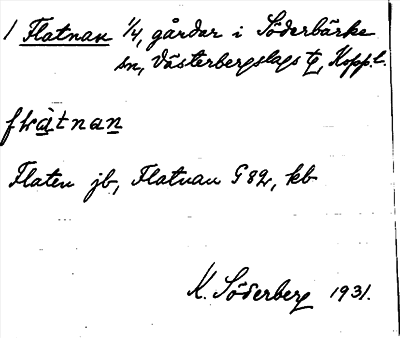 1 Flatnan 1/4, gårdar i Söderbärke
sn, Västerbergslags tg, Kopp.l.
flàtnan
Flaten jb, Flatnan G82, kb
K. Söderberg 1931.